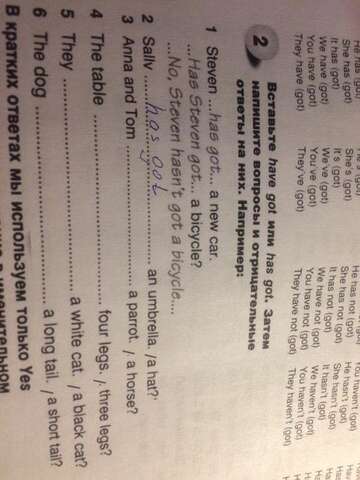 She has (got) She's (got) She has not (got) She hasn't (got)
It has (got) It's (got) It has not (got) It hasn't (got)
We have (got) We've (got) We have not (got) We haven't (got)
You have (got) You've (got) You have not (got) You haven't (got)
They have (got) They've (got) They have not (got) They haven't (got)
2 Вставьте have got или has got. Затем
напишите вопросы и отрицательные
ответы на них. Например:
1 Steven ...has got... a new car.
...Has Steven got... a bicycle?
...No, Steven hasn't got a bicycle....
2 Sally ...has got... an umbrella. / a hat?
3 Anna and Tom ... a parrot. / a horse?
4 The table ... four legs. / three legs?
5 They ... a white cat. / a black cat?
6 The dog ... a long tail. / a short tail?
В кратких ответах мы используем только Yes